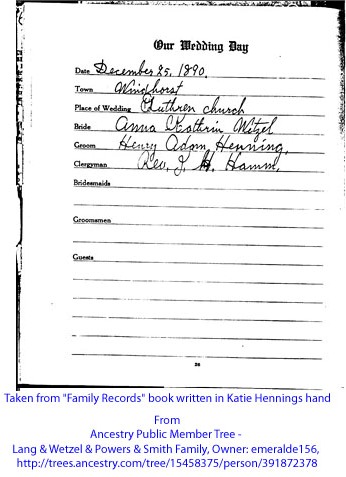 Our Wedding Day
Date December 25, 1890.
Town Windhorst
Place of Wedding Luthren church
Bride Anna Kathrin Wetzel
Groom Henry Adam Henning,
Clergyman Rev. J. H. Hamm,
Bridesmaids
Groomsmen
Guests
36
Taken from "Family Records" book written in Katie Hennings hand
From
Ancestry Public Member Tree -
Lang & Wetzel & Powers & Smith Family, Owner: emeralde156,
http://trees.ancestry.com/tree/15458375/person/391872378